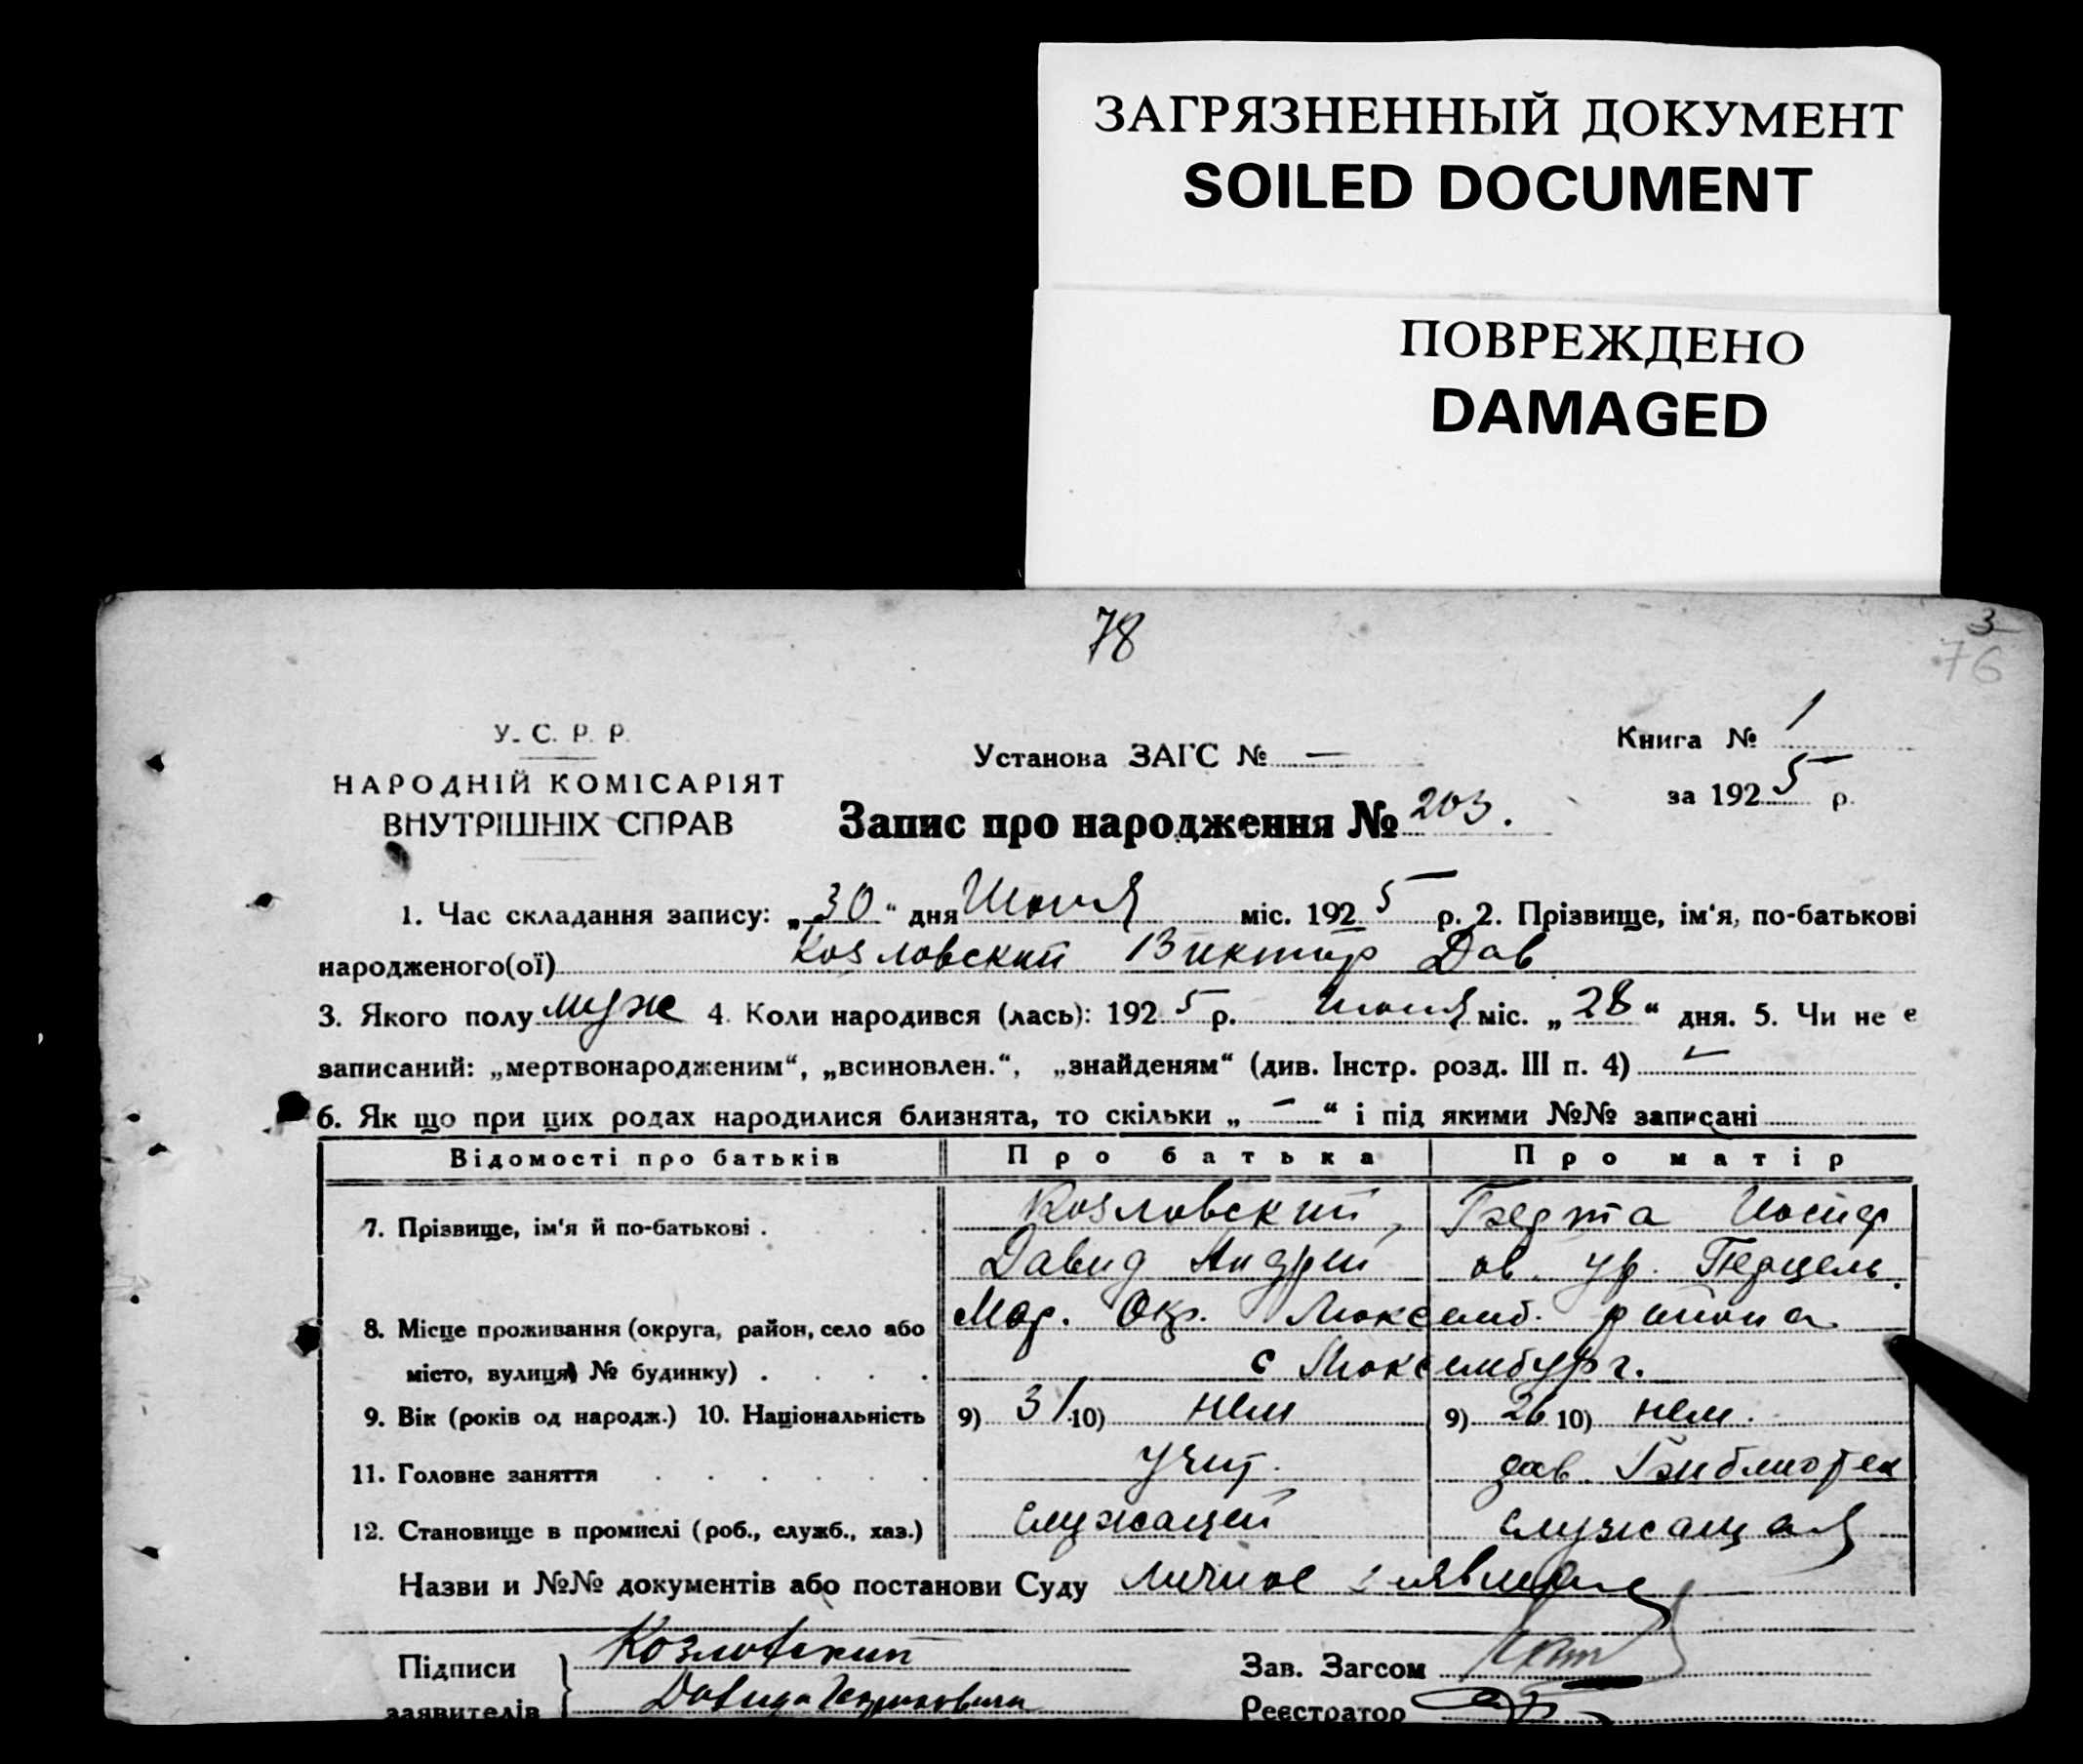 ЗАГРЯЗНЕННЫЙ ДОКУМЕНТ
SOILED DOCUMENT
ПОВРЕЖДЕНО
DAMAGED
78
3
76
У. С. Р. Р.
НАРОДНІЙ КОМІСАРІЯТ
ВНУТРІШНІХ СПРАВ
Установа ЗАГС № —
Книга № 1
за 1925 р.
Запис про народження № 203.
1. Час складання запису: „30“ дня Июня міс. 1925 р. 2. Прізвище, ім'я, по-батькові
народженого(ої) Козловский Виктор Дав
3. Якого полу муж 4. Коли народився (лась): 1925 р. Июня міс. „28“ дня. 5. Чи не е
записаний: „мертвонародженим“, „всиновлен.“, „знайденям“ (див. Інстр. розд. III п. 4) —
6. Як що при цих родах народилися близнята, то скільки „—“ і під якими №№ записані
Відомості про батьків Про батька Про матір
7. Прізвище, ім'я й по-батькові . Козловский, Берта Иосиф
Давид Андрей ов. ур. Перцель.
8. Місце проживання (округа, район, село або Мар. Окр. Люксемб. района
місто, вулиця, № будинку) . с Люксембург.
9. Вік (років од народж.) 10. Національність 9) 31 10) нем 9) 26 10) нем.
11. Головне заняття учит. зав. Библиотек
12. Становище в промислі (роб., служб., хаз.) служащей служащая
Назви и №№ документів або постанови Суду личное заявление
Підписи Козловский Зав. Загсом
заявителів Давид Реєстратор